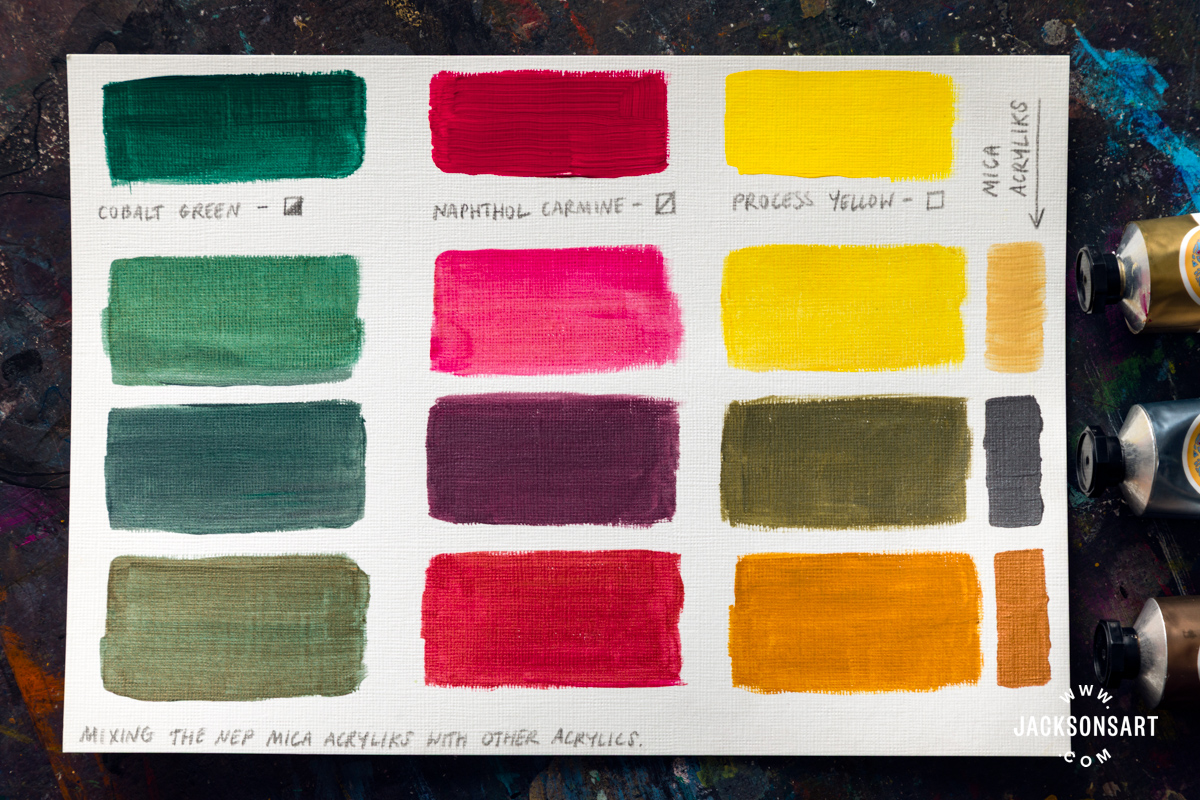 COBALT GREEN -
NAPHTHOL CARMINE -
PROCESS YELLOW -
MICA
ACRYLIKS
MIXING THE NEP MICA ACRYLIKS WITH OTHER ACRYLICS.
WWW.
JACKSONSART
.COM